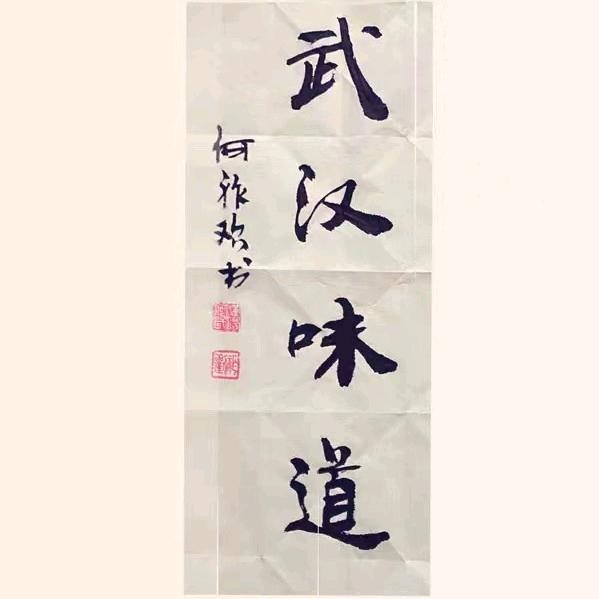 武汉味道
何祚欢书